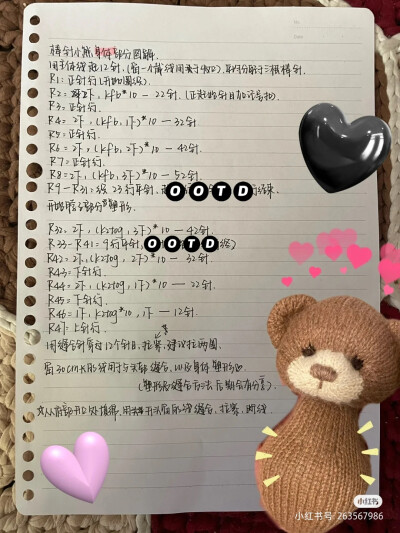 棒针小熊身体部分图解
用主体线起12针,(留一个尾线用来于收口),平均分配于三根棒针.
R1= 正针行(开始圈织)
R2= 2下, kfb*10 — 22针 (正起始针目加记号扣)
R3= 正针行.
R4= 2下,(kfb,1下)*10 — 32针
R5= 正针行
R6= 2下,(kfb,2下)*10 — 42针
R7= 正针行
R8= 2下,(kfb,3下)*10 — 52针
R9—R31= 织 23行平针,
OOTD
开始 部分 塑形.
R32= 2下,(k2tog,3下)*10 — 42针
R33—R41= 9行平针,
OOTD
R42= 2下,(k2tog,2下)*10 — 32针
R43= 下针行
R44= 2下,(k2tog,1下)*10 — 22针
R45= 下针行
R46= 1下,k2tog*10,1下 — 12针
R47 上针行
用缝合针穿过12个针目,拉紧,建议拉两圈.
留30cm长的线用于与头部缝合,以及身体塑形.
(塑形及缝合方法后期会有分享)
从 部开口处填棉,用 开头留的线缝合,拉紧,断线
小红书
小红书号: 263567986